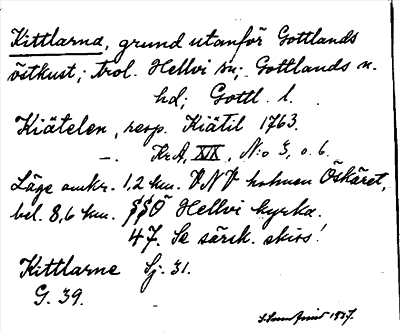 Kittlarna, grund utanför Gottlands
östkust; trol. Hellvi sn; Gottlands n.
hd; Gottl. l.
Kiätelen, resp. Kiätil 1763.
—. Kr.A, XIX, N:o 3, o. 6.
Läge omkr. 1,2 km. VNV holmen Öskäret,
bel. 8,6 km. SSÖ Hellvi kyrka.
47. Se särsk. skiss!
Kittlarne Sj. 31.
G. 39.
1937.